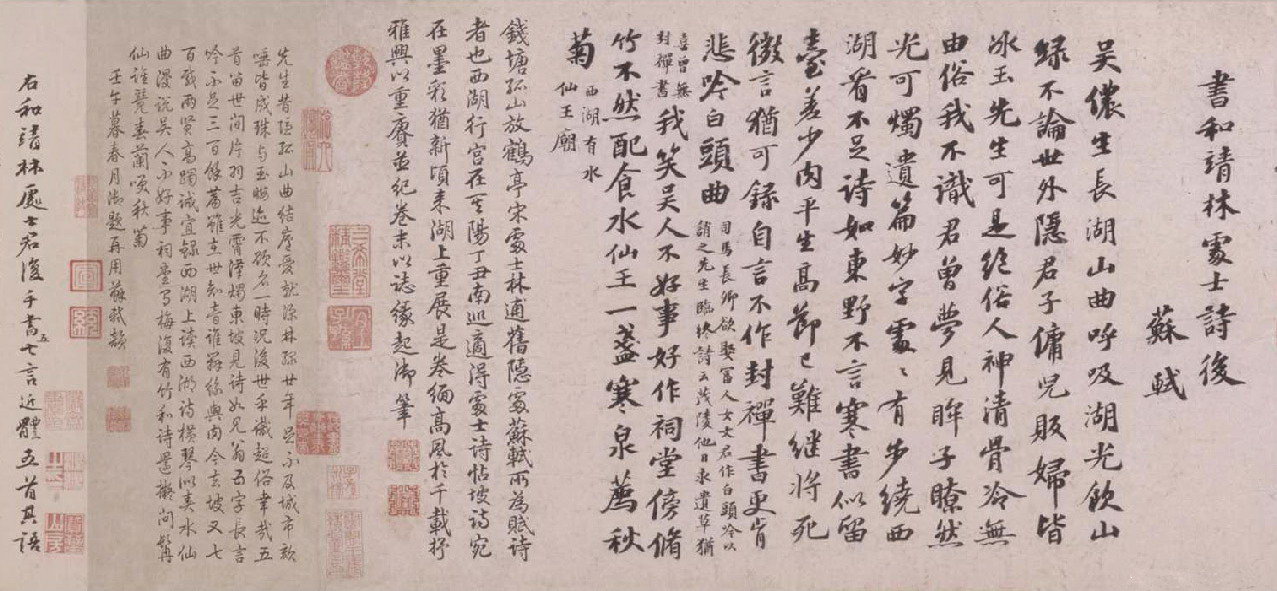 書和靖林處士詩後
蘇軾
吳儂生長湖山曲呼吸湖光飲山
緑不論世外隱君子傭兒販婦皆
冰玉先生可是絕俗人神清骨冷無
由俗我不識君曾夢見眸子瞭然
光可燭遺篇妙字處〻有步繞西
湖看不足詩如東野不言寒書似留
臺差少肉平生高節已難繼將死
微言猶可録自言不作封禪書更肯
悲吟白頭曲
司馬長卿欲娶富人女文君作白頭吟以
誚之先生臨終詩云茂陵他日求遺草猶
喜曾無
封禪書
我笑吳人不好事好作祠堂傍脩
竹不然配食水仙王一盞寒泉薦秋
菊
西湖有水
仙王廟
錢塘孤山放鶴亭宋處士林逋舊隱處蘇軾所為賦詩
者也西湖行宮在其陽丁丑南巡適得處士詩帖坡詩宛
在墨彩猶新頃来湖上重展是卷緬高風於千載抒
雅興以重賡並紀卷末以誌緣起御筆
先生昔隱孤山曲結廬愛就林緑廿年足不及城市欬
唾皆成珠与玉晦迹不欲名一時況後世乎誠超俗幸哉五
首留世間片羽吉光靈澤燭東坡見詩如見翁五字長言
吟不足三百餘篇雖世知音誰絲與肉今去坡又七
百載兩賢高躅誠宜録西湖上讀西湖詩橫琴以奏水仙
曲漫說吳人不好事祠堂有梅復有竹和詩還擬問髯
仙詎覓春蘭嘆秋菊
壬午暮春月御題再用蘇軾韻
右和靖林處士君復手書七言近體五首具語